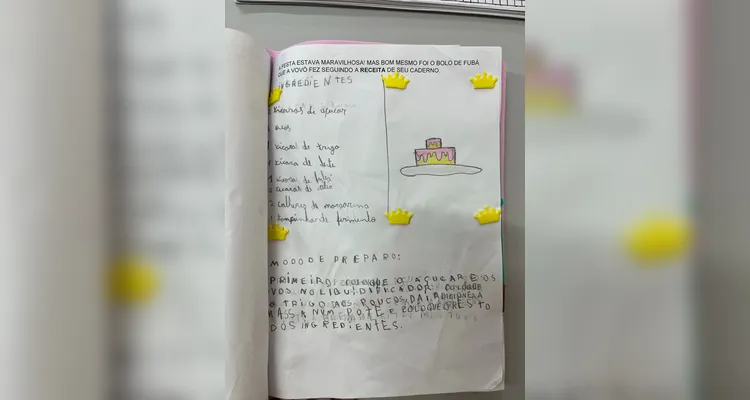 A FESTA ESTAVA MARAVILHOSA! MAS BOM MESMO FOI O BOLO DE FUBÁ
QUE A VOVÓ FEZ SEGUINDO A RECEITA DE SEU CADERNO.
INGREDIENTES
xicaras de açucar
ovos
xicara de trigo
xicara de leite
xicara de
2 colheres de margarina
1 tampinha de fermento
MODO DE PREPARO:
PRIMEIRO COLOQUE O AÇUCAR E OS
OVOS NO LIQUIDIFICADOR COLOQUE
O TRIGO AOS POUCOS DAI ADICIONE A
MASSA NUM POTE E COLOQUE O RESTO
DOS INGREDIENTES.